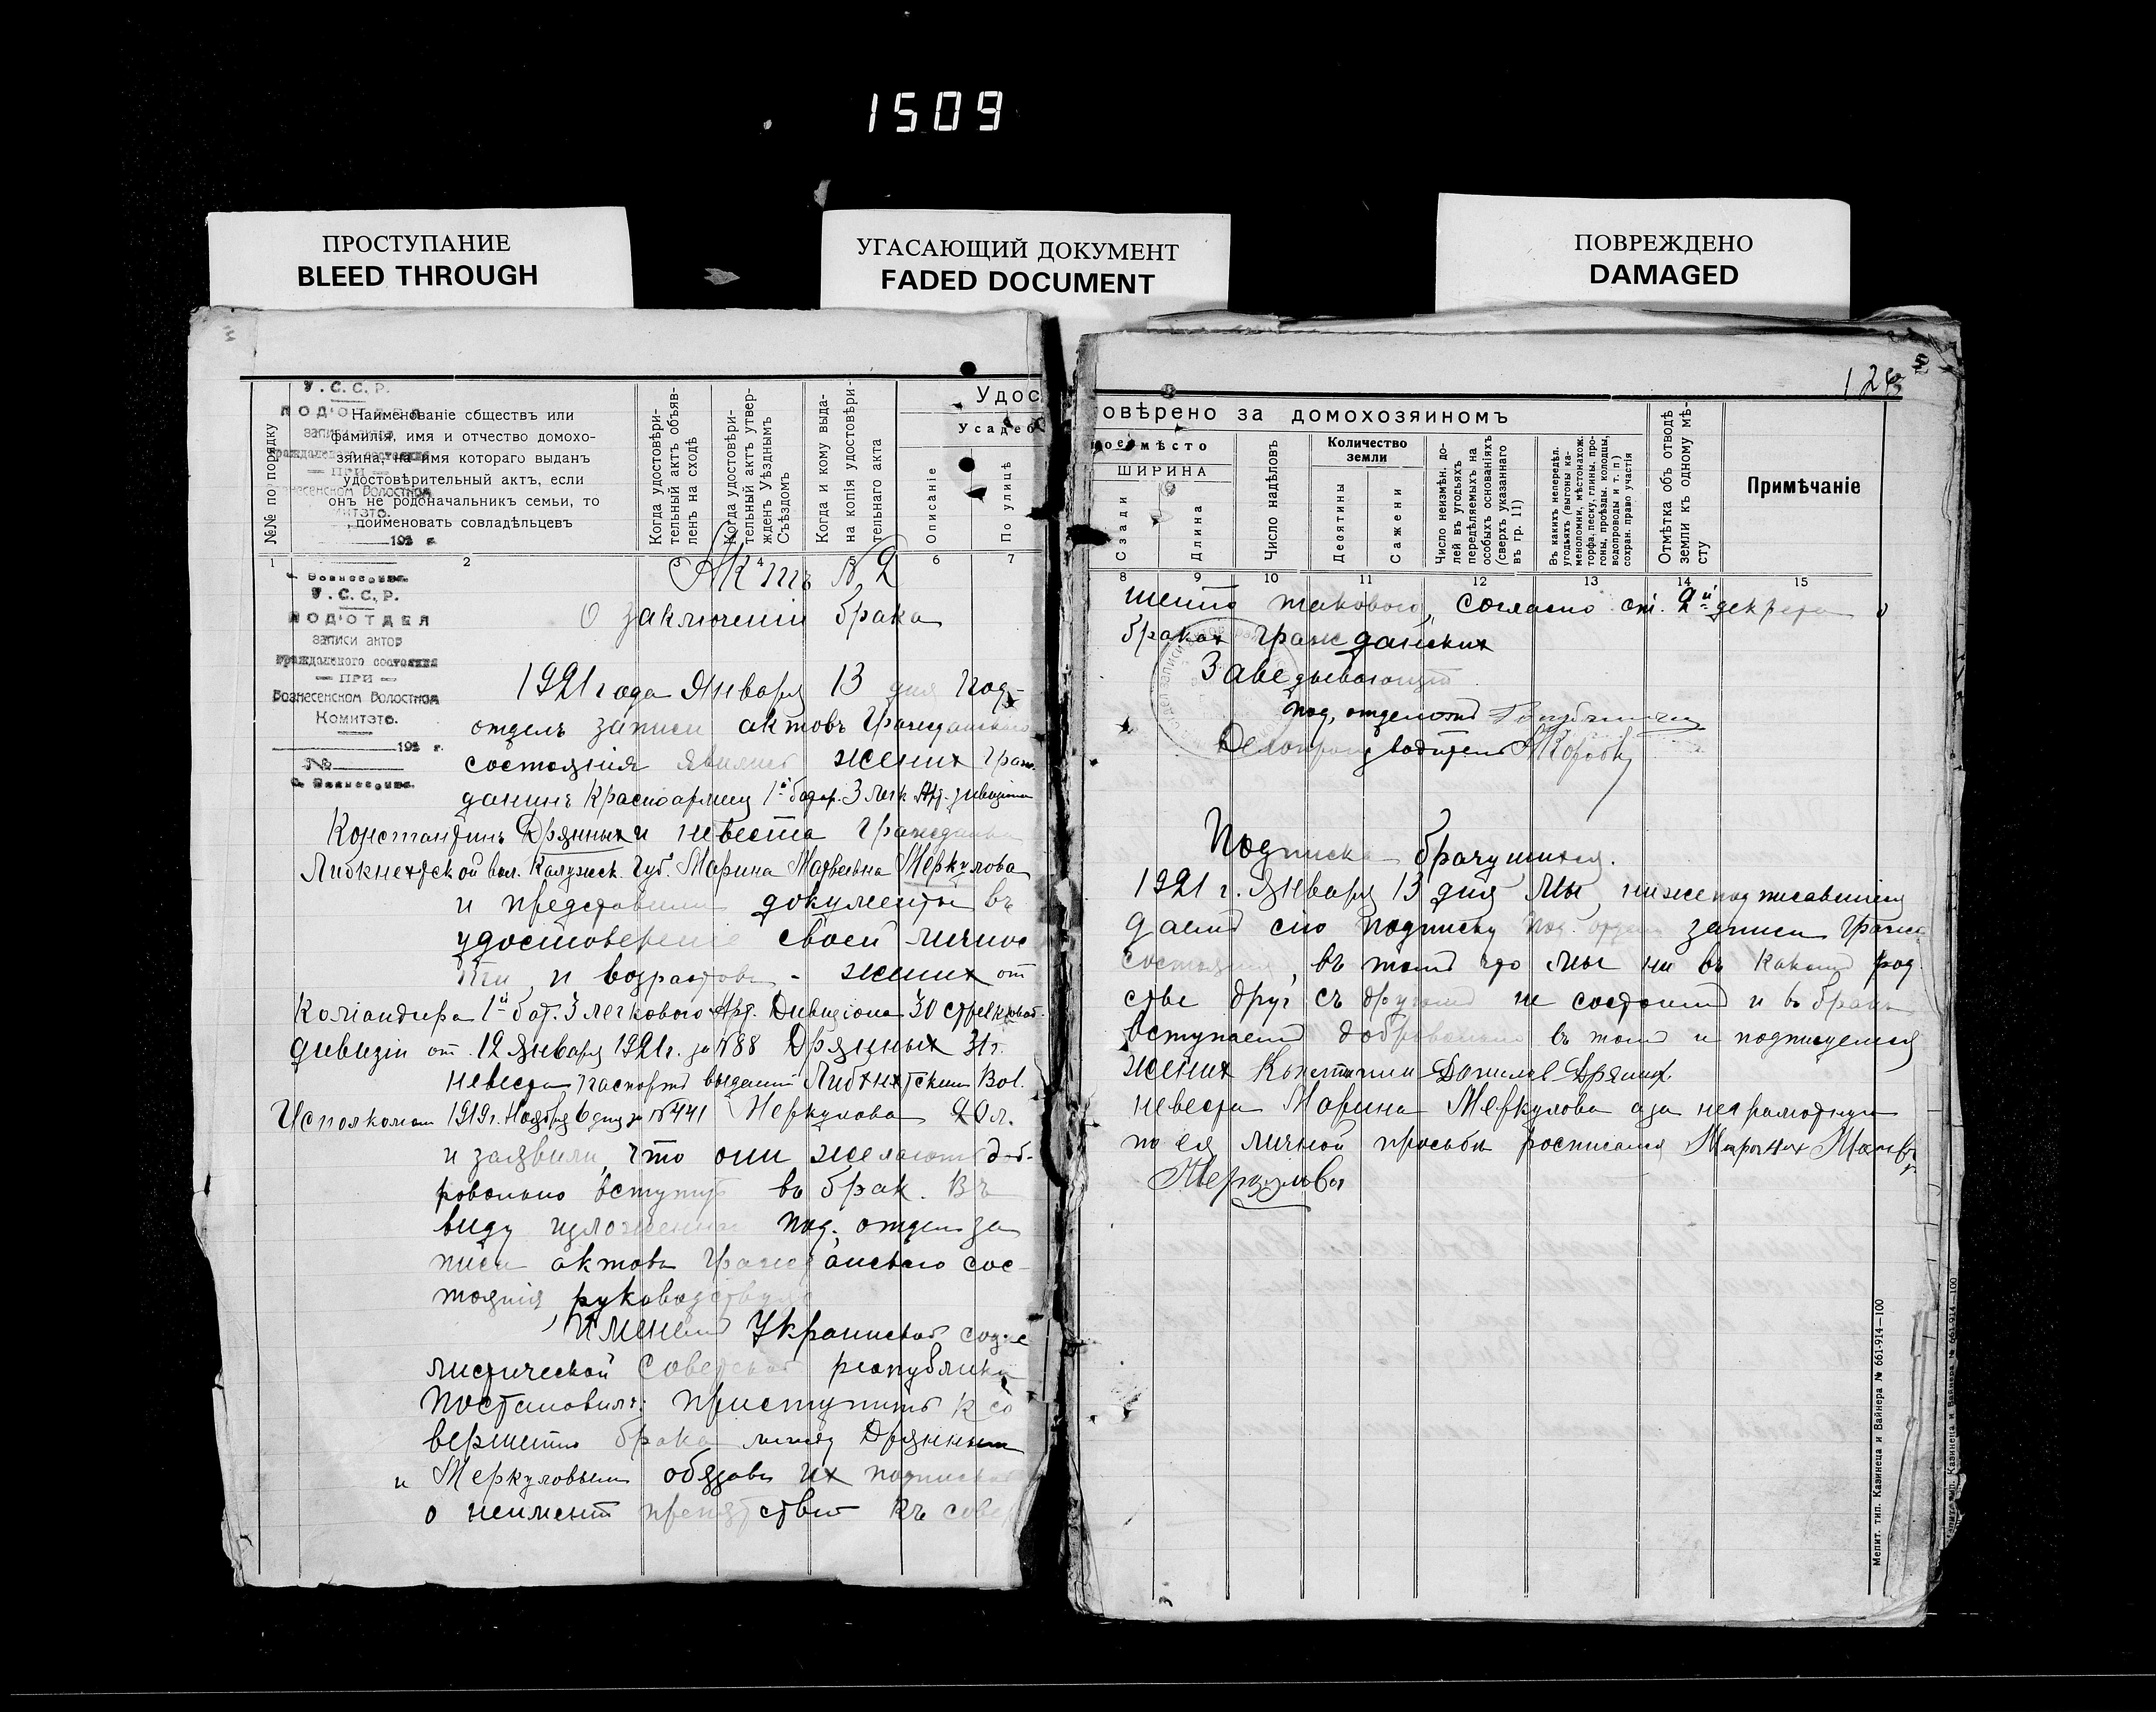 1509
ПРОСТУПАНИЕ
BLEED THROUGH
УГАСАЮЩИЙ ДОКУМЕНТ
FADED DOCUMENT
ПОВРЕЖДЕНО
DAMAGED
№№ по порядку
Наименованіе обществъ или
фамилія, имя и отчество домохо-
зяина, на имя котораго выданъ
удостовѣрительный актъ, если
онъ не родоначальникъ семьи, то
поименовать совладѣльцевъ
Когда удостовѣри-
тельный актъ объяв-
ленъ на сходѣ
Когда удостовѣри-
тельный актъ утвер-
жденъ Уѣзднымъ
Съѣздомъ
Когда и кому выда-
на копія удостовѣри-
тельнаго акта
Удос
Усадеб
Описаніе
По улицѣ
1 2 4 6 7
У.С.С.Р.
ПОДОТДЕЛ
записи актов
гражданского состояния
— ПРИ —
Вознесенском Волостном
Комитэте.
192 г.
№
с. Вознесенка.
Актъ № 2
О заключеніи брака
1921 года Января 13 дня Под-
отделъ записи актовъ Гражданскаго
состоянія явились жених Граж-
данинъ Красноармеец 1й батар. 3 легк. Арт. дивизіона
Константинъ Дрянных и невеста Гражданка
Либкнехтской вол. Калужск. Губ. Марина Матвеевна Меркулова
и представили документы въ
удостоверение своей личнос
ти и возрастовъ - жених от
Командира 1й бат. 3 легкового Арт. Дивизіона 30 стрелковой
дивизіи от 12 Января 1921 г. за №88 Дрянных 31 г.
невеста паспорт выданый Либкнехтским Вол.
Исполкомом 1919 г. Ноября 6 дня за №441 Меркулова 20 л.
и заявили, что они желают доб-
ровольно вступить въ брак. Въ
виду изложенного под. отдел за
писи актовъ Гражданского сос-
тоянія руководствуясь
Именем Украинской социа
листической Советской республики
постановилъ: приступить к со
вершению брака между Дрянным
и Меркуловым обязавъ их подпиской
о неимении препятствий къ совер
124
овѣрено за домохозяиномъ
ное мѣсто
ШИРИНА
Сзади
Длина
Число надѣловъ
Количество
земли
Десятины
Сажени
Число неизмѣн. до-
лей въ угодьяхъ
передѣляемыхъ на
особыхъ основаніяхъ
(сверхъ указаннаго
въ гр. 11)
Въ какихъ непередѣл.
угодьяхъ (выгоны ка-
меноломни, мѣстонахож.
торфа, песку, глины, про-
гоны, проѣзды, колодцы,
водопроводы и т. п)
сохран. право участія
Отмѣтка объ отводѣ
земли къ одному мѣ-
сту
Примѣчаніе
8 9 10 11 12 13 14 15
шению такового, согласно ст. 2й декрета о
браках гражданских
Заведывающий
Под. отделом
Делопроизводитель
Подписка брачущихся.
1921 г. Января 13 дня Мы, нижеподписавшіеся
даем сію подписку под. отделу записи Гражд
состоянія, въ том что мы ни въ каком род
стве друг съ другом не состоим и въ брак
вступаем добровольно въ том и подписуемся
жених Константин Данилов Дрянных
невеста Марина Меркулова а за неграмотную
по ея личной просьбе росписался Матв
Меркулова
Мелит. тип. Казинеца и Вайнера № 661-914—100